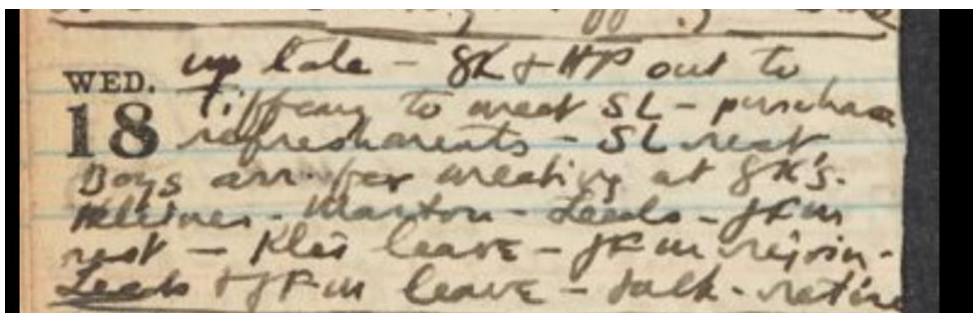 up late – GK & HP out to
WED.
Tiffany to meet SL – purchase
18
refreshments – SL rest
Boys arr. for meeting at GK's.
Kleiner – Morton – Leeds – JFM
rest – Klei leave – JFM rejoin –
Leeds & JFM leave – talk – retire